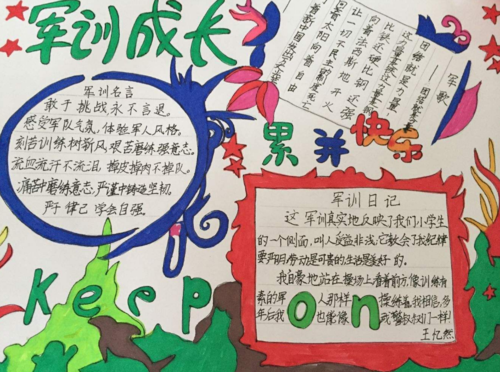 军训成长
军训名言
敢于挑战,永不言退。
感受军队气氛,体验军人风格。
刻苦训练树新风,艰苦磨练强意志。
流血流汗不流泪,掉皮掉肉不掉队。
痛苦中磨练意志,严谨中铸造坚韧,
严于律己 学会自强。
军歌
团结就是力量
这力量是铁
这力量是钢
比铁还硬比钢还强
向着法西斯地开火
让一切不民主的制度死亡
向着太阳向着自由
累并快乐
军训日记
这军训真实地反映了我们小学生
的一个侧面,叫人受益非浅,它教会了我纪律
要严明,劳动是可贵的,生活是美好的。
我自豪地站在操场上看着前方,像训练有
素的军人那样
我相信,多
年后我也能像
叔叔们一样!
王忆然
Keep
on